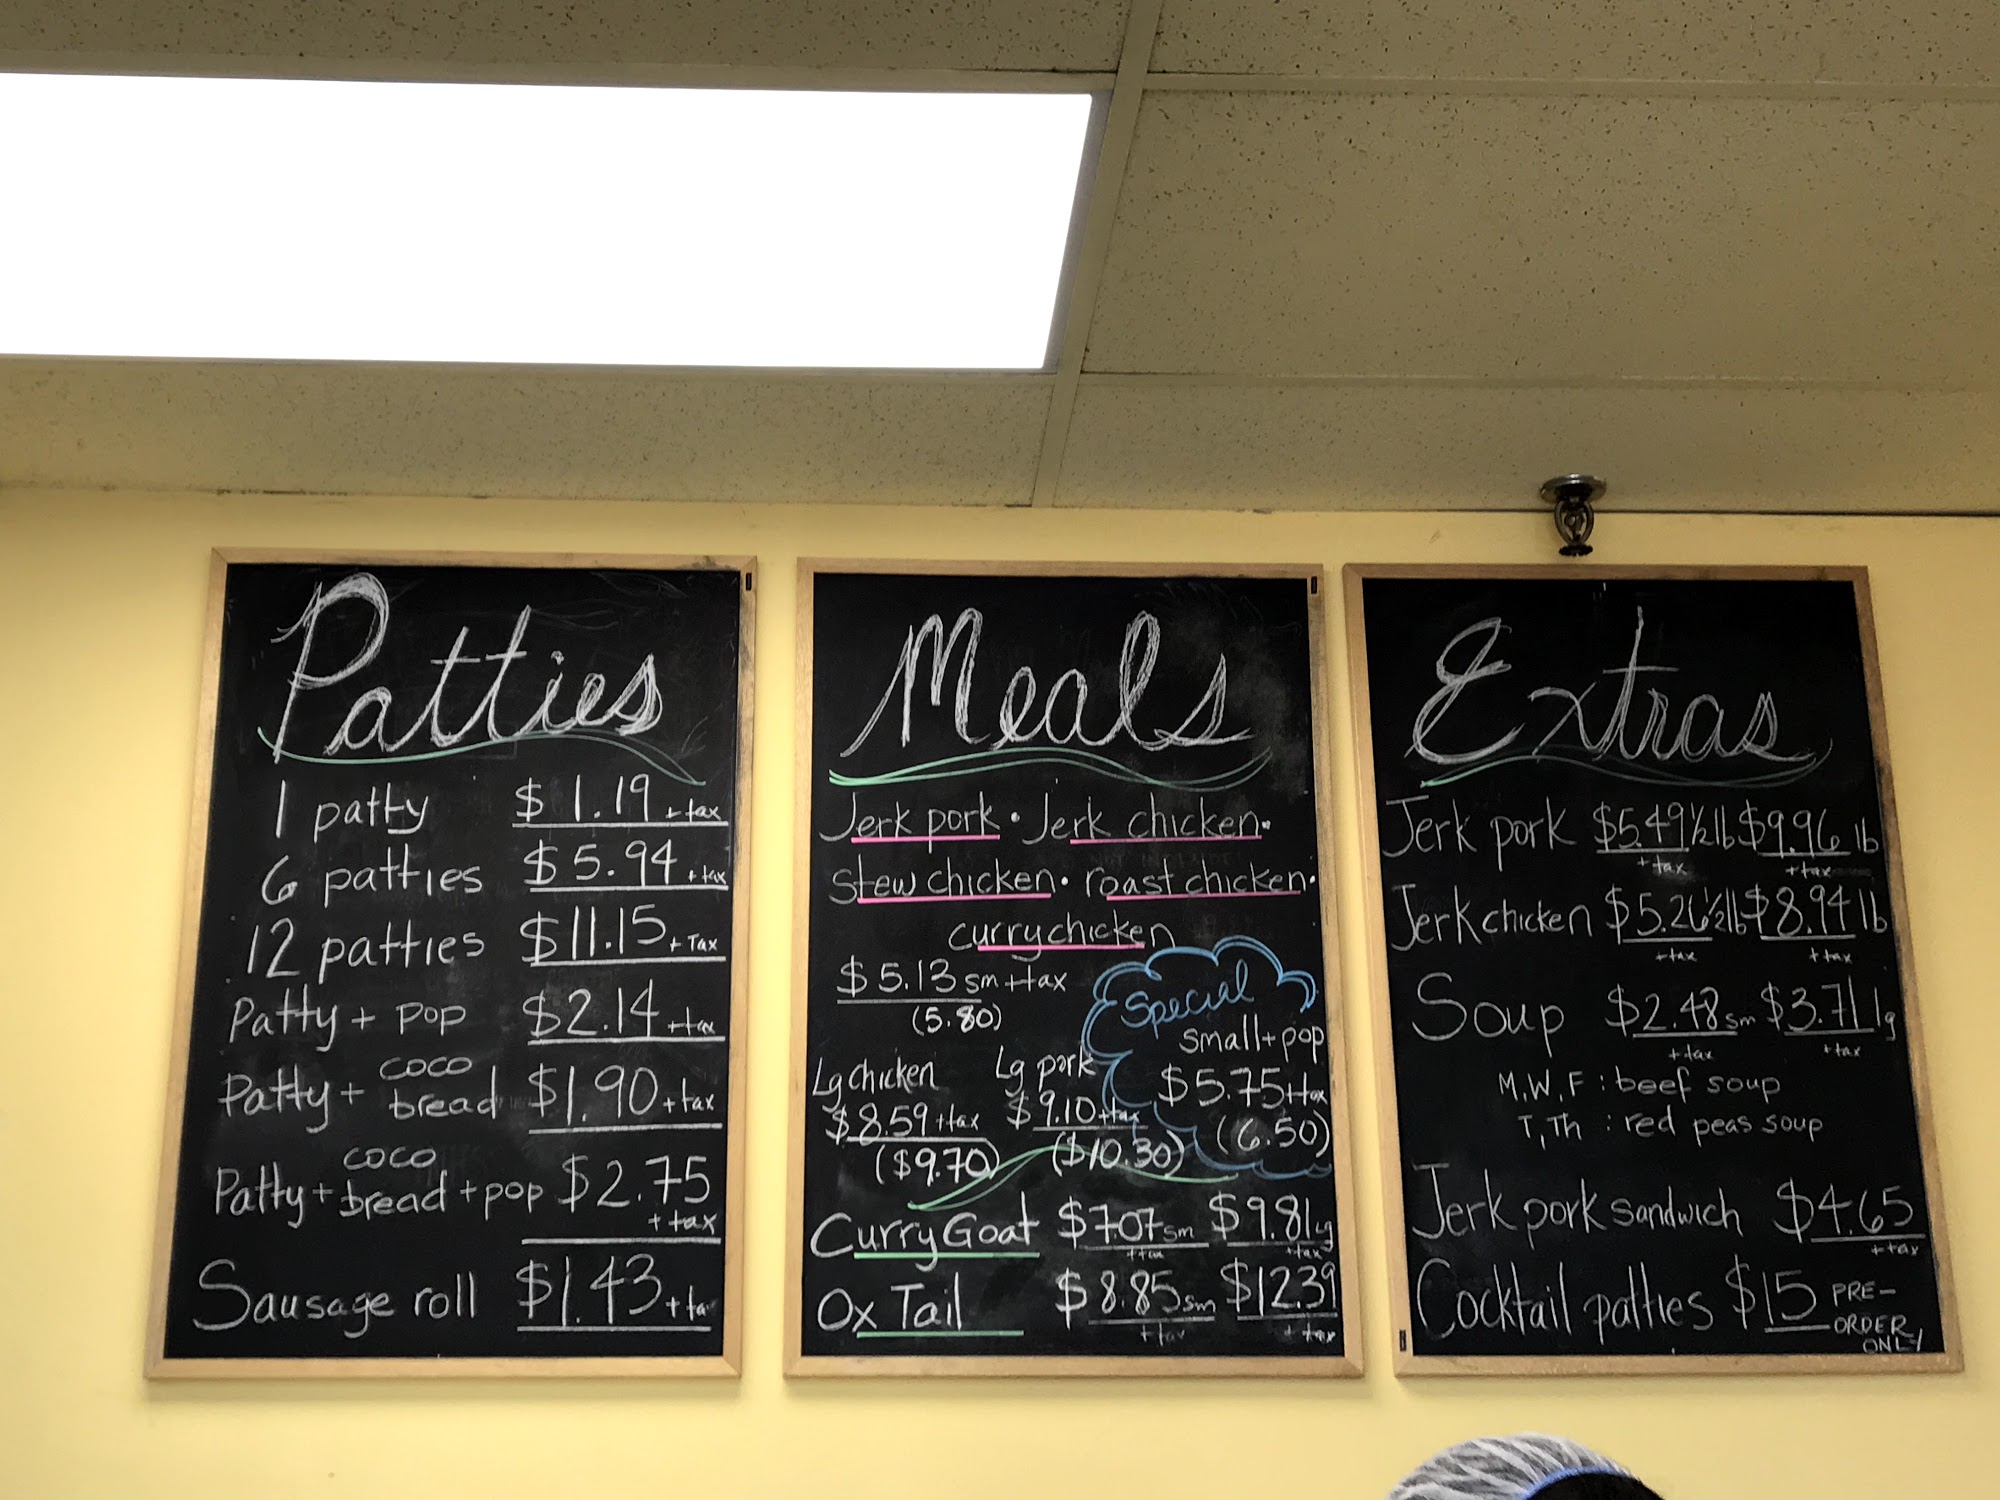 Patties
1 patty $1.19 + tax
6 patties $5.94 + tax
12 patties $11.15 + Tax
Patty + pop $2.14 + tax
Patty + coco bread $1.90 + tax
Patty + coco bread + pop $2.75 + tax
Sausage roll $1.43 + ta
Meals
Jerk pork • Jerk chicken •
stew chicken • roast chicken •
curry chicken
$5.13 sm + tax
(5.80)
Special
small + pop
$5.75 + tax
(6.50)
Lg chicken
$8.59 + tax
($9.70)
Lg pork
$9.10 + tax
($10.30)
Curry Goat $7.07 sm $9.81 lg
+ tax + tax
Ox Tail $8.85 sm $12.39
+ tax + tax
Extras
Jerk pork $5.49 ½ lb $9.96 lb
+ tax + tax
Jerk chicken $5.26 ½ lb $8.94 lb
+ tax + tax
Soup $2.48 sm $3.71 lg
+ tax + tax
M, W, F : beef soup
T, Th : red peas soup
Jerk pork sandwich $4.65
+ tax
Cocktail patties $15 PRE-
ORDER
ONLY